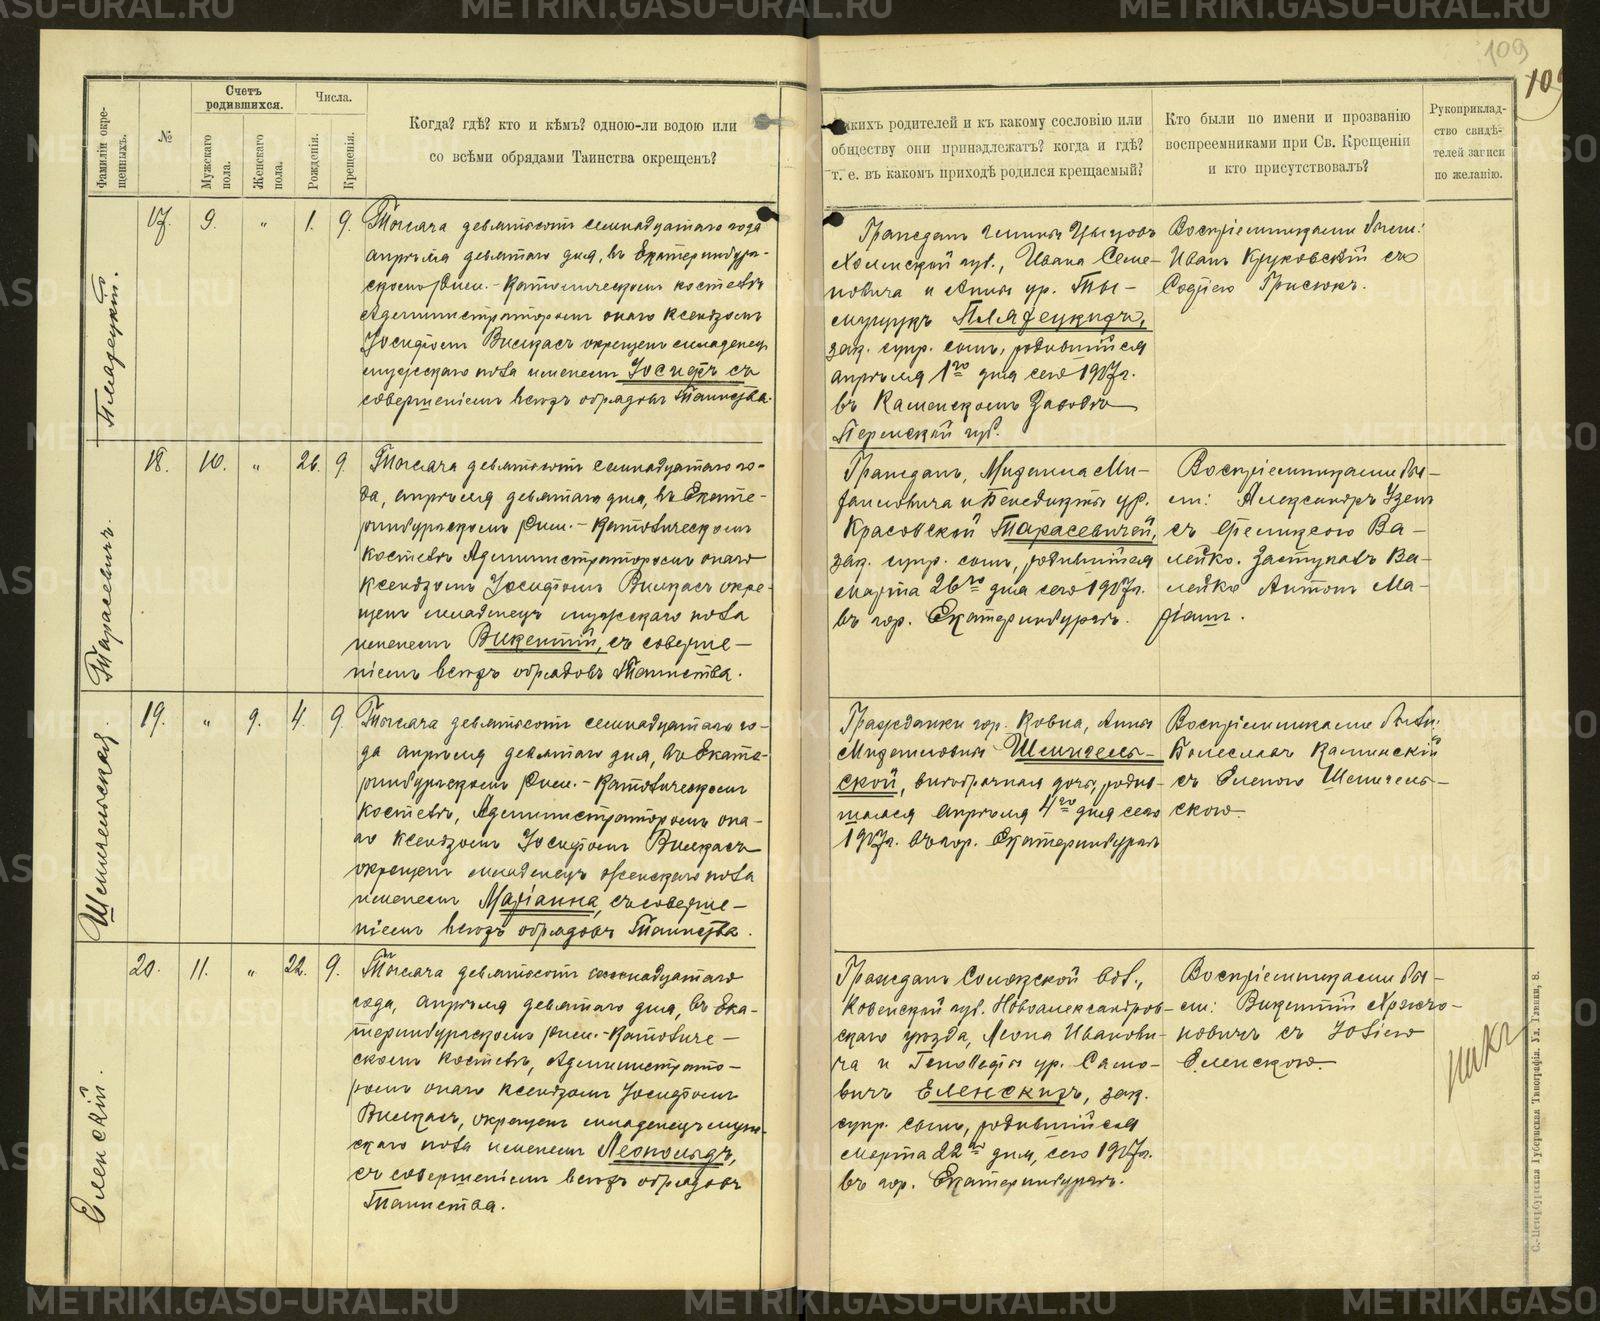 METRIKI.GASO-URAL.RU
109
109
Фамиліи окре-
щенныхъ.
№
Счетъ
родившихся.
Мужскаго
пола.
Женскаго
пола.
Числа.
Рожденія.
Крещенія.
Когда? гдѣ? кто и кѣмъ? одною-ли водою или
со всѣми обрядами Таинства окрещенъ?
родителей и къ какому сословію или
обществу они принадлежатъ? когда и гдѣ?
т. е. въ какомъ приходѣ родился крещаемый?
Кто были по имени и прозванію
воспреемниками при Св. Крещеніи
и кто присутствовалъ?
Рукоприклад-
ство свидѣ-
телей записи
по желанію.
17. 9. „ 1. 9.
Тысяча девятьсотъ семнадцатаго года
апрѣля девятаго дня, въ Екатеринбург-
скомъ Рим.-Католическомъ костелѣ
Администраторомъ онаго Ксендзомъ
Іосифомъ Вилкасъ окрещенъ младенец
мужскаго пола именемъ Іосифъ съ
совершеніемъ всѣхъ обрядовъ Таинства.
Гражданъ
Холмской губ., Ивана Семе-
новича и Анны ур.
зак. супр. сынъ, родившійся
апрѣля 1го дня сего 1917г.
въ Каменскомъ Заводѣ
Пермской губ.
Воспріемниками были:
Иванъ Круковскій съ
Софіею Грисюкъ.
Тарасевичъ.
18. 10. „ 26. 9.
Тысяча девятьсотъ семнадцатаго го-
да, апрѣля девятаго дня, въ Екате-
ринбургскомъ Рим.-Католическомъ
Костелѣ Администраторомъ онаго
Ксендзомъ Іосифомъ Вилкасъ окре-
щенъ младенецъ мужскаго пола
именемъ Викентій, съ соверше-
ніемъ всѣхъ обрядовъ Таинства.
Гражданъ, Михаила Ми-
хайловича и Бенедикты ур.
Красовской Тарасевичей,
зак. супр. сынъ, родившійся
марта 26го дня сего 1917г.
въ гор. Екатеринбургѣ.
Воспріемниками бы-
ли: Александръ
съ Фелицею Ва-
лейко. Ва-
лейко Антонъ Ма-
ріанъ.
Шемчельская.
19. „ 9. 4. 9.
Тысяча девятьсотъ семнадцатаго го-
да апрѣля девятаго дня, въ Екате-
ринбургскомъ Рим.-Католическомъ
Костелѣ, Администраторомъ она-
го Ксендзомъ Іосифомъ Вилкасъ
окрещенъ младенецъ женскаго пола
именемъ Маріанна, съ соверше-
ніемъ всѣхъ обрядовъ Таинства.
Гражданки гор. Ковна, Анны
ской, внѣбрачная дочь, родив-
шаяся апрѣля 4го дня сего
1917г. въ гор. Екатеринбургѣ
Воспріемниками были:
Болеславъ Калинскій
съ Еленою
скою.
Еленскій.
20. 11. „ 22. 9.
Тысяча девятьсотъ семнадцатаго
года, апрѣля девятаго дня, въ Ека-
теринбургскомъ Рим.-Католиче-
скомъ Костелѣ, Администрато-
ромъ онаго Ксендзомъ Іосифомъ
Вилкасъ, окрещенъ младенецъ муж-
скаго пола именемъ Леопольдъ,
съ совершеніемъ всѣхъ обрядовъ
Таинства.
Гражданъ вол.,
Ковенской губ. Новоалександров-
скаго уѣзда, Леона Иванови-
ча и ур. Само-
вичъ Еленскихъ, зак.
супр. сынъ, родившійся
марта 22го дня, сего 1917г.
въ гор. Екатеринбургѣ.
Воспріемниками бы-
ли: Викентій
новичъ съ Юліею
Еленскою.
С.-Петербургская Губернская Типографія. Ул. Глинки, 8.